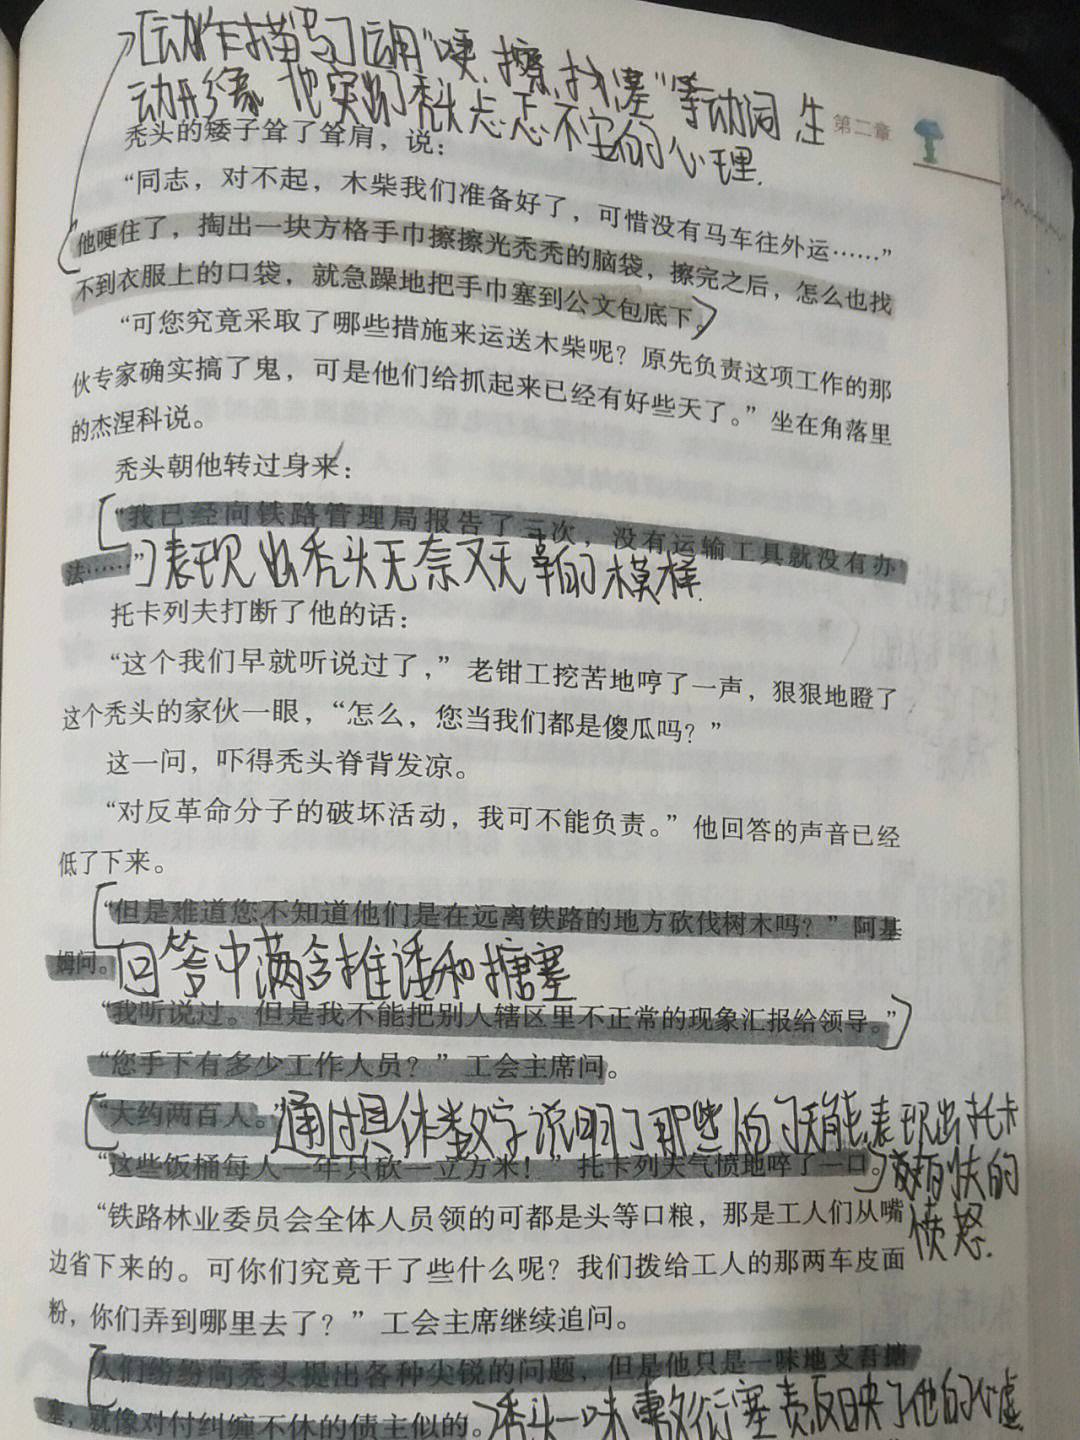 [动作描写]运用“哽、擦、找、塞”等动词 生
动形象地突出了秃头忐忑不安的心理.
第二章
秃头的矮子耸了耸肩，说：
“同志，对不起，木柴我们准备好了，可惜没有马车往外运……”
他哽住了，掏出一块方格手巾擦擦光秃秃的脑袋，擦完之后，怎么也找
不到衣服上的口袋，就急躁地把手巾塞到公文包底下。
“可您究竟采取了哪些措施来运送木柴呢？原先负责这项工作的那
伙专家确实搞了鬼，可是他们给抓起来已经有好些天了。”坐在角落里
的杰涅科说。
秃头朝他转过身来：
“我已经向铁路管理局报告了三次，没有运输工具就没有办
法……”
表现出秃头无奈又无辜的模样.
托卡列夫打断了他的话：
“这个我们早就听说过了，”老钳工挖苦地哼了一声，狠狠地瞪了
这个秃头的家伙一眼，“怎么，您当我们都是傻瓜吗？”
这一问，吓得秃头脊背发凉。
“对反革命分子的破坏活动，我可不能负责。”他回答的声音已经
低了下来。
“但是难道您不知道他们是在远离铁路的地方砍伐树木吗？”阿基
姆问。
回答中满含推诿和搪塞
“我听说过。但是我不能把别人辖区里不正常的现象汇报给领导。”
“您手下有多少工作人员？”工会主席问。
“大约两百人。”
通过具体数字说明了那些人的无能,表现出托卡
“这些饭桶每人一年只砍一立方米！”托卡列夫气愤地啐了一口。
列夫的
愤怒.
“铁路林业委员会全体人员领的可都是头等口粮，那是工人们从嘴
边省下来的。可你们究竟干了些什么呢？我们拨给工人的那两车皮面
粉，你们弄到哪里去了？”工会主席继续追问。
人们纷纷向秃头提出各种尖锐的问题，但是他只是一味地支吾搪
塞，就像对付纠缠不休的债主似的。
秃头一味敷衍塞责反映了他的心虚